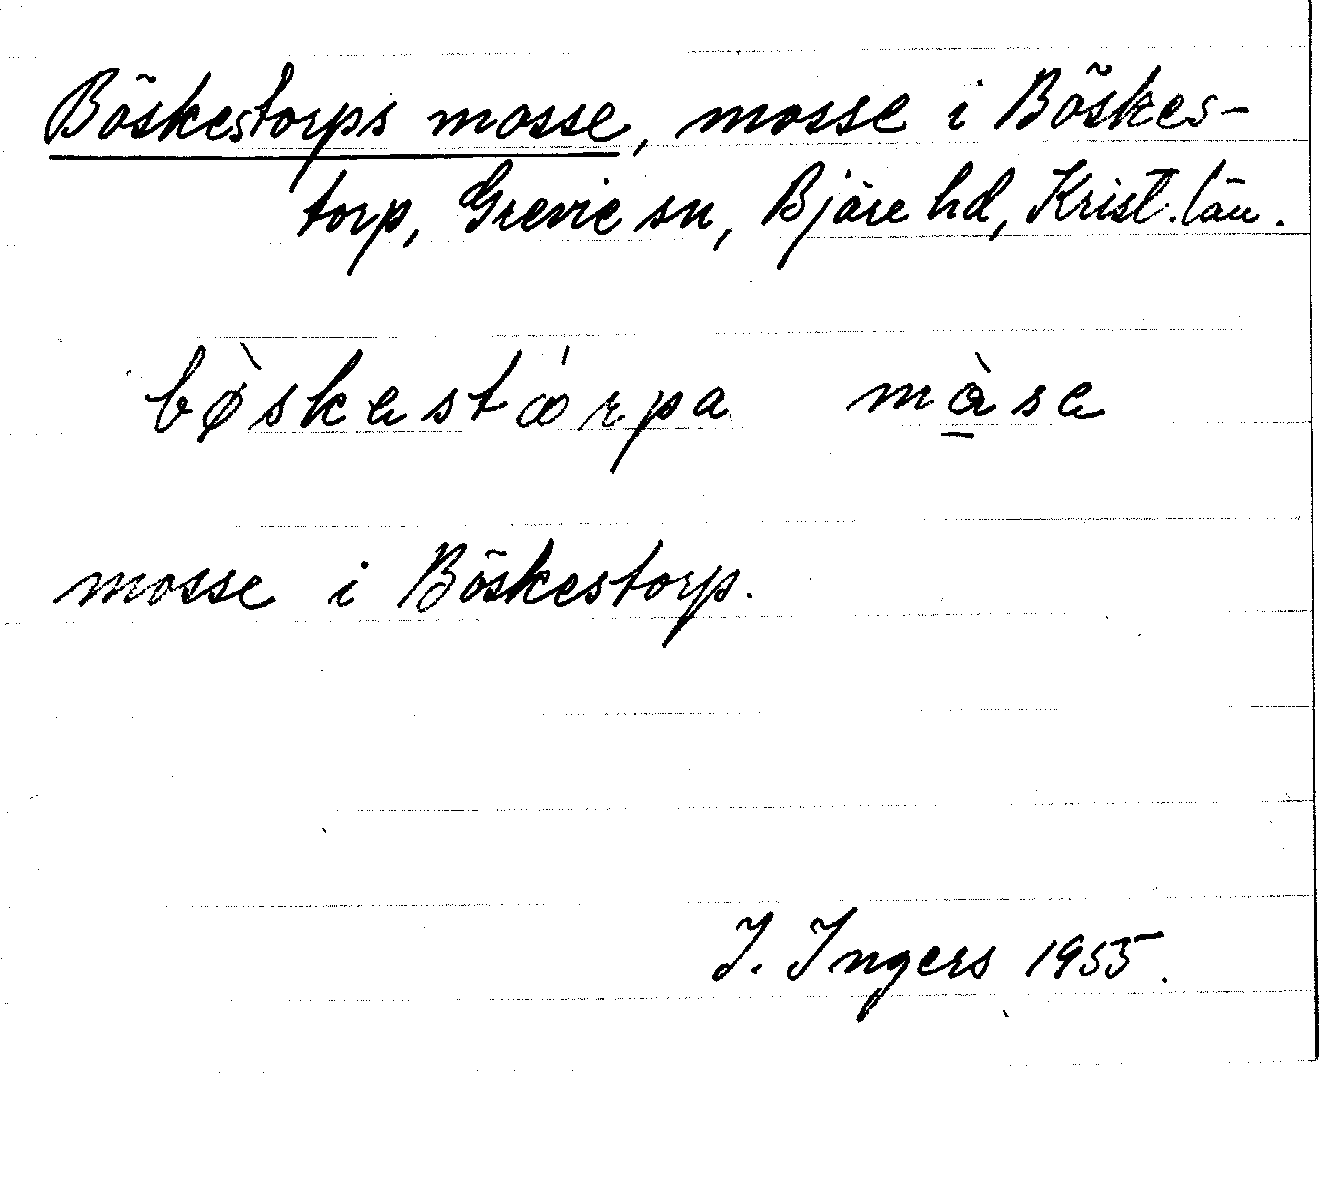 Böskestorps mosse, mosse i Böskes-
torp, Grevie sn, Bjäre hd, Krist. län.
bø̀skastǿrpa mà̠sa
mosse i Böskestorp.
I. Ingers 1955.